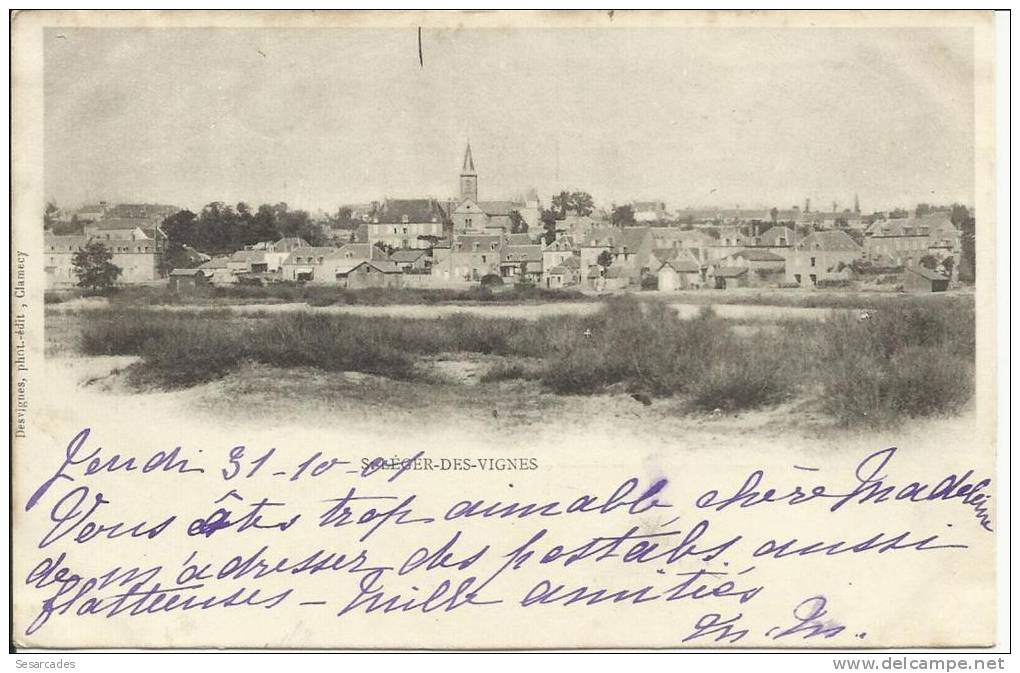 Desvignes, phot.-édit, Clamecy
St-LÉGER-DES-VIGNES
Jeudi 31-10-01
Vous êtes trop aimable chère Madeleine
de m'adresser des postales aussi
flatteuses - Mille amitiés
M. M.
Sesarcades
www.delcampe.net